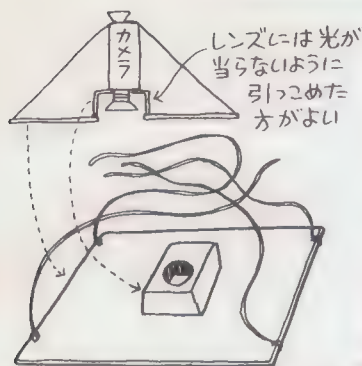 カメラ
レンズには光が
当らないように
引っこめた
方がよい